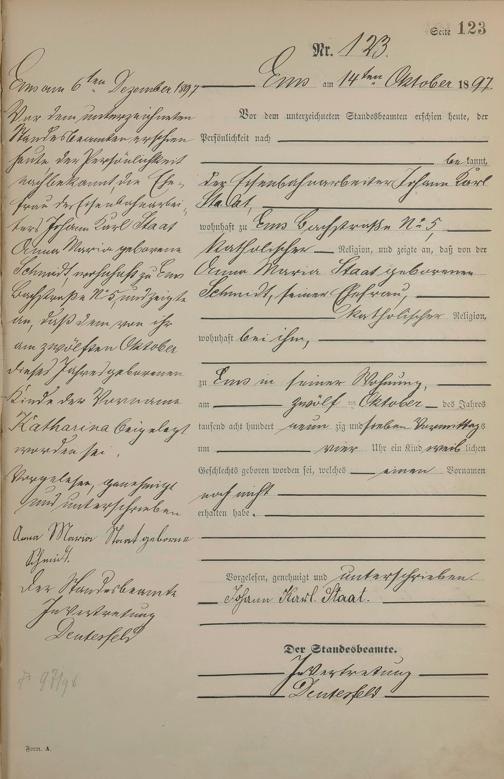 Seite 123
Nr. 123.
Ems am 14ten Oktober 1897
Vor dem unterzeichneten Standesbeamten erschien heute, der
Persönlichkeit nach
bekannt,
der Eisenbahnarbeiter Johann Karl
Staat,
wohnhaft zu Ems Bachstraße No 5
katholischer Religion, und zeigte an, daß von der
Anna Maria Staat geborenen
Schmidt, seiner Ehefrau,
katholischer Religion,
wohnhaft bei ihm,
zu Ems in seiner Wohnung,
am zwölf ten Oktober des Jahres
tausend acht hundert neunzig und sieben Vormittags
um vier Uhr ein Kind weiblichen
Geschlechts geboren worden sei, welches einen Vornamen
noch nicht
erhalten habe.
Vorgelesen, genehmigt und unterschrieben.
Johann Karl Staat.
Der Standesbeamte.
In Vertretung
Deutesfeld
Ems am 6ten Dezember 1897
Vor dem unterzeichneten
Standesbeamten erschien
heute der Persönlichkeit
nach bekannt die Ehe-
frau des Eisenbahnarbei-
ters Johann Karl Staat
Anna Maria geborene
Schmidt, wohnhaft zu Ems
Bachstraße No 5, und zeigte
an, daß dem, von ihr
am zwölften Oktober
dieses Jahres geborenen
Kinde der Vorname
Katharina beigelegt
worden sei.
Vorgelesen, genehmigt
und unterschrieben
Anna Maria Staat geborne
Schmidt.
Der Standesbeamte
In Vertretung
Deutesfeld
Form. A.